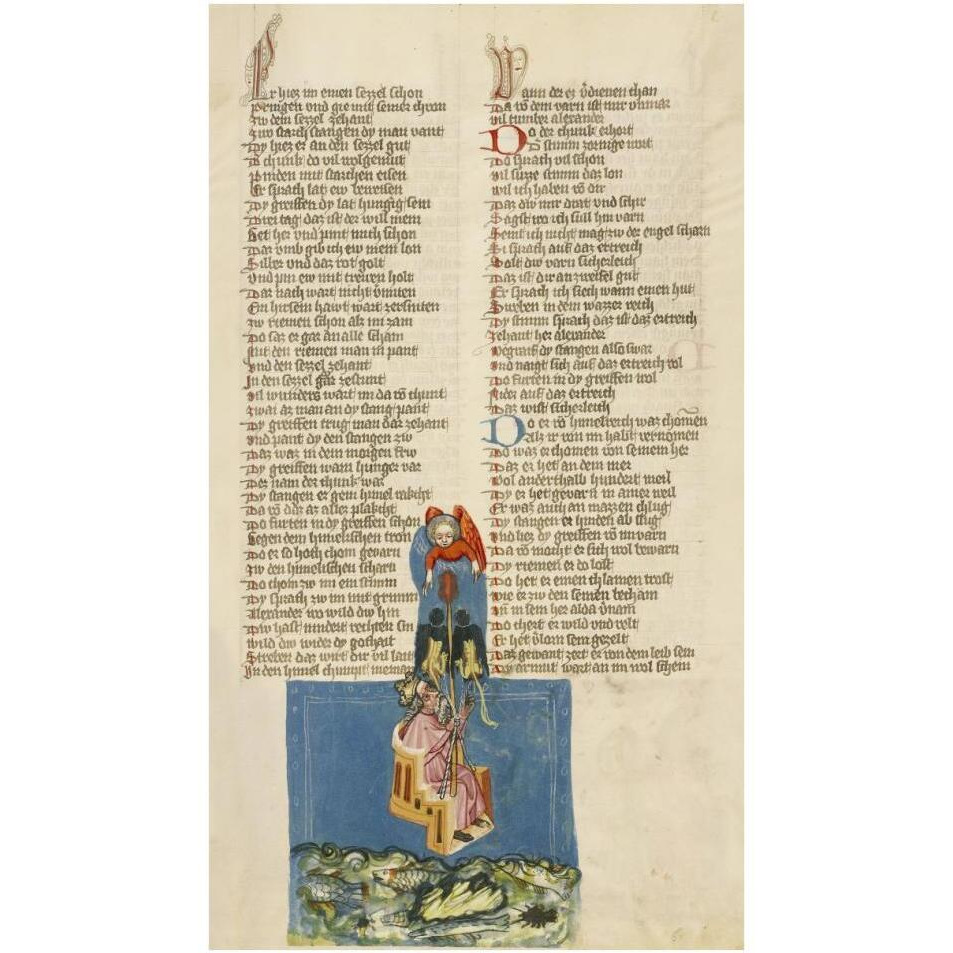 Er hiez im einen sezzel schon
pringen vnd gie mit seiner chron
zw dem sezzel zehant
zwo starch stangen dy man vant
Dy hiez er an den sezzel gut
D chunk do vil wolgemut
pinden mit starchen eisen
Er sprach lat ew beweisen
Dy greiffen dy lat hungig sein
Drei tag daz ist der will mein
Get her vnd pint mich schon
Dar vmb gib ich ew mein lon
Silber vnd daz rot golt
vnd pin ew mit trewen holt
Dar nach wart nicht
Ein hirsein hawt wart zersniten
zw riemen schon als im zam
Do saz er gar an alle scham
Mit den riemen man in pant
vnd den sezzel zehant
In den sezzel
vil wunders wart im da chunt
zwai az man an dy stang pant
Dy greiffen trug man dar zehant
vnd pant dy den stangen zw
Daz waz in dem morgen frw
Dy greiffen warn hunger var
Der nam der chunk war
Dy stangen er gein himel
Da dir az allez
Do furten in dy greiffen schon
Gegen dem himelischen tron
Do er so hoch chom gevarn
zw den himelischen scharn
Do chom zw im ein stimm
Dy sprach zw im mit grimm
Alexander wo wild dw hin
Dw hast nindert rechten sin
wild dw wider dy gothait
Streben daz wirt dir vil lait
In den himel chumpt nieman
Wann der er verdienen chan
Da von dem varn ist mir vnmar
vil tumber alexander
Do der chunk erhort
Die stimm zornige wort
Do sprach vil schon
vil suzze stimm daz lon
wil ich haben von dir
Daz dw mir drat vnd schir
Sagst wo ich sull hin varn
Seint ich nicht mag zw der engel scharn
Si sprach auf daz ertreich
Solt dw varn sicherleich
Daz ist dir an zweifel gut
Er sprach ich siech wann einen hut
Sweben in dem wazzer reich
Dy stimm sprach daz ist daz ertreich
zehant her alexander
Begraif dy stangen also swar
vnd naigt sich auf daz ertreich wol
Do furten in dy greiffen wol
Nider auf daz ertreich
Daz wist sicherleich
Do er von himelreich waz chomen
Als ir von im habt vernomen
Do waz er chomen von seinem her
Daz er het an dem mer
Wol anderthalb hundert meil
Dy er het gevarn in ainer weil
Er waz auch an mazzen chlug
Dy stangen er hinden ab slug
vnd liez dy greiffen von im varn
Da von mocht er sich wol bewarn
Dy riemen er do lost
Do het er einen chlainen trost
wie er zw den seinen becham
in sein her alda
Do chert er wild vnd velt
Er het verlorn sein gezelt
Daz gewant zert er von dem leib sein
Dy armut wart an im wol schein